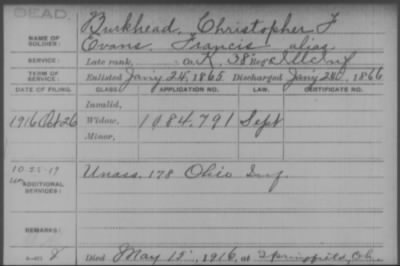 DEAD.
NAME OF SOLDIER:
Burkhead, Christopher F
Evans, Francis alias
SERVICE:
Late rank, Co. K, 38 Reg't Ill Inf
TERM OF SERVICE:
Enlisted Jan'y 24, 1865 Discharged Jan'y 24, 1866
DATE OF FILING. CLASS. APPLICATION NO. LAW. CERTIFICATE NO.
Invalid,
1916 Oct 26 Widow, 1084.791 Sept
Minor,
10-25-17
ADDITIONAL SERVICES:
Unass. 178 Ohio Inf.
REMARKS:
Died May 15, 1916, at Springfield, Ohio